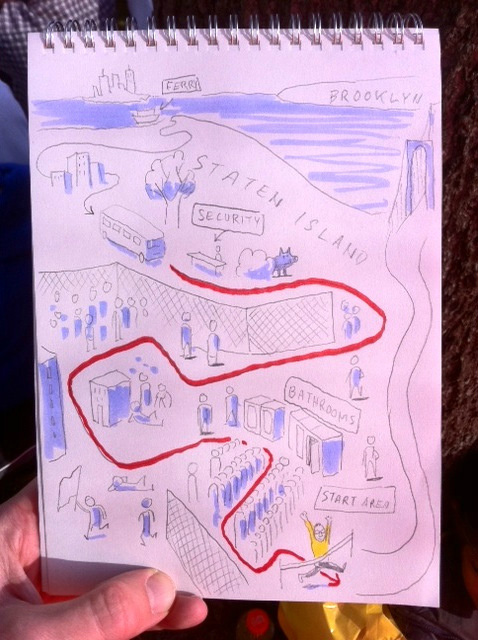 FERRY
BROOKLYN
STATEN ISLAND
SECURITY
BATHROOMS
START AREA